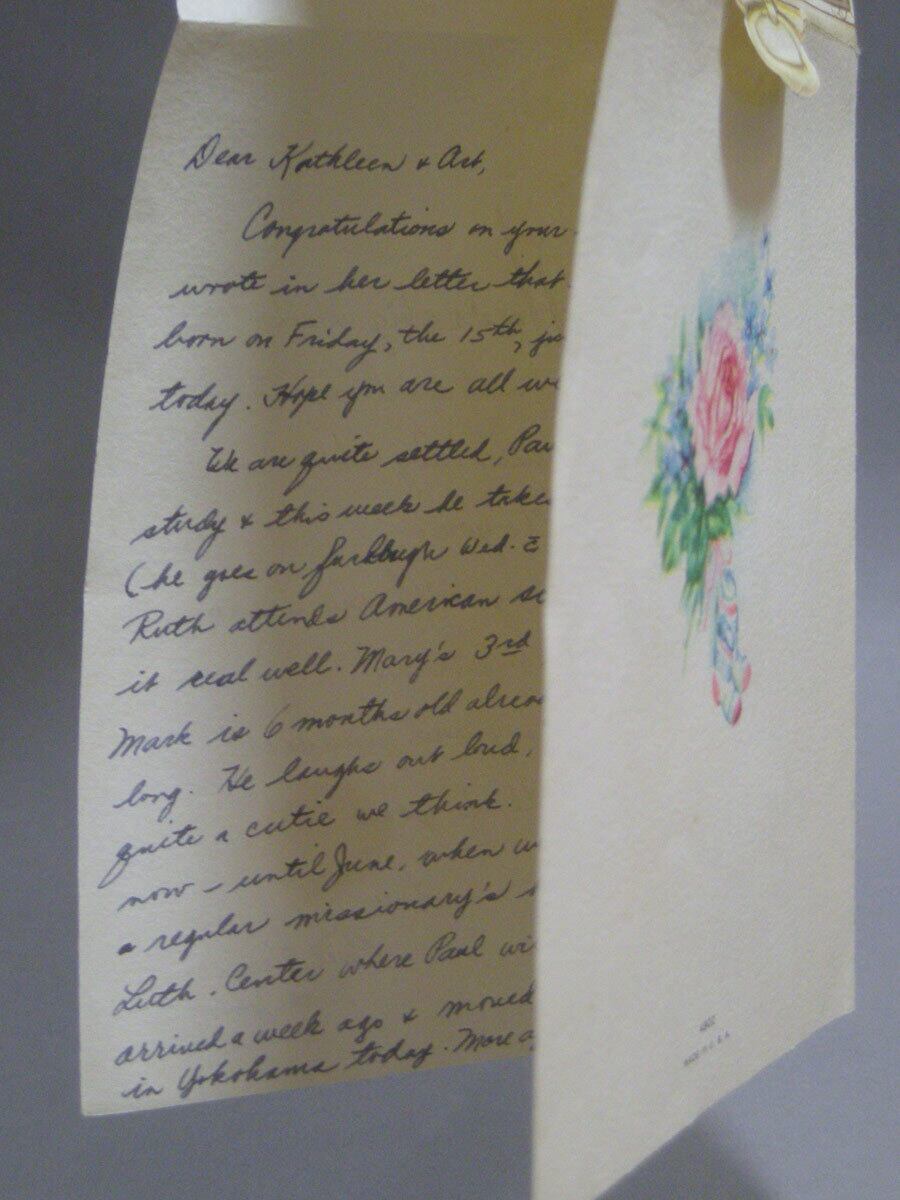 Dear Kathleen & Art,
Congratulations on your
wrote in her letter that
born on Friday, the 15th,
today. Hope you are all
We are quite settled,
study & this week he
(he goes on furlough Wed.
Ruth attends American
it real well. Mary's 3rd
Mark is 6 months old
long. He laughs out loud,
quite a cutie we think.
now - until June, when
a regular missionary's
Luth. Center where Paul
arrived a week ago & moved
in Yokohama today. More
MADE IN U.S.A.